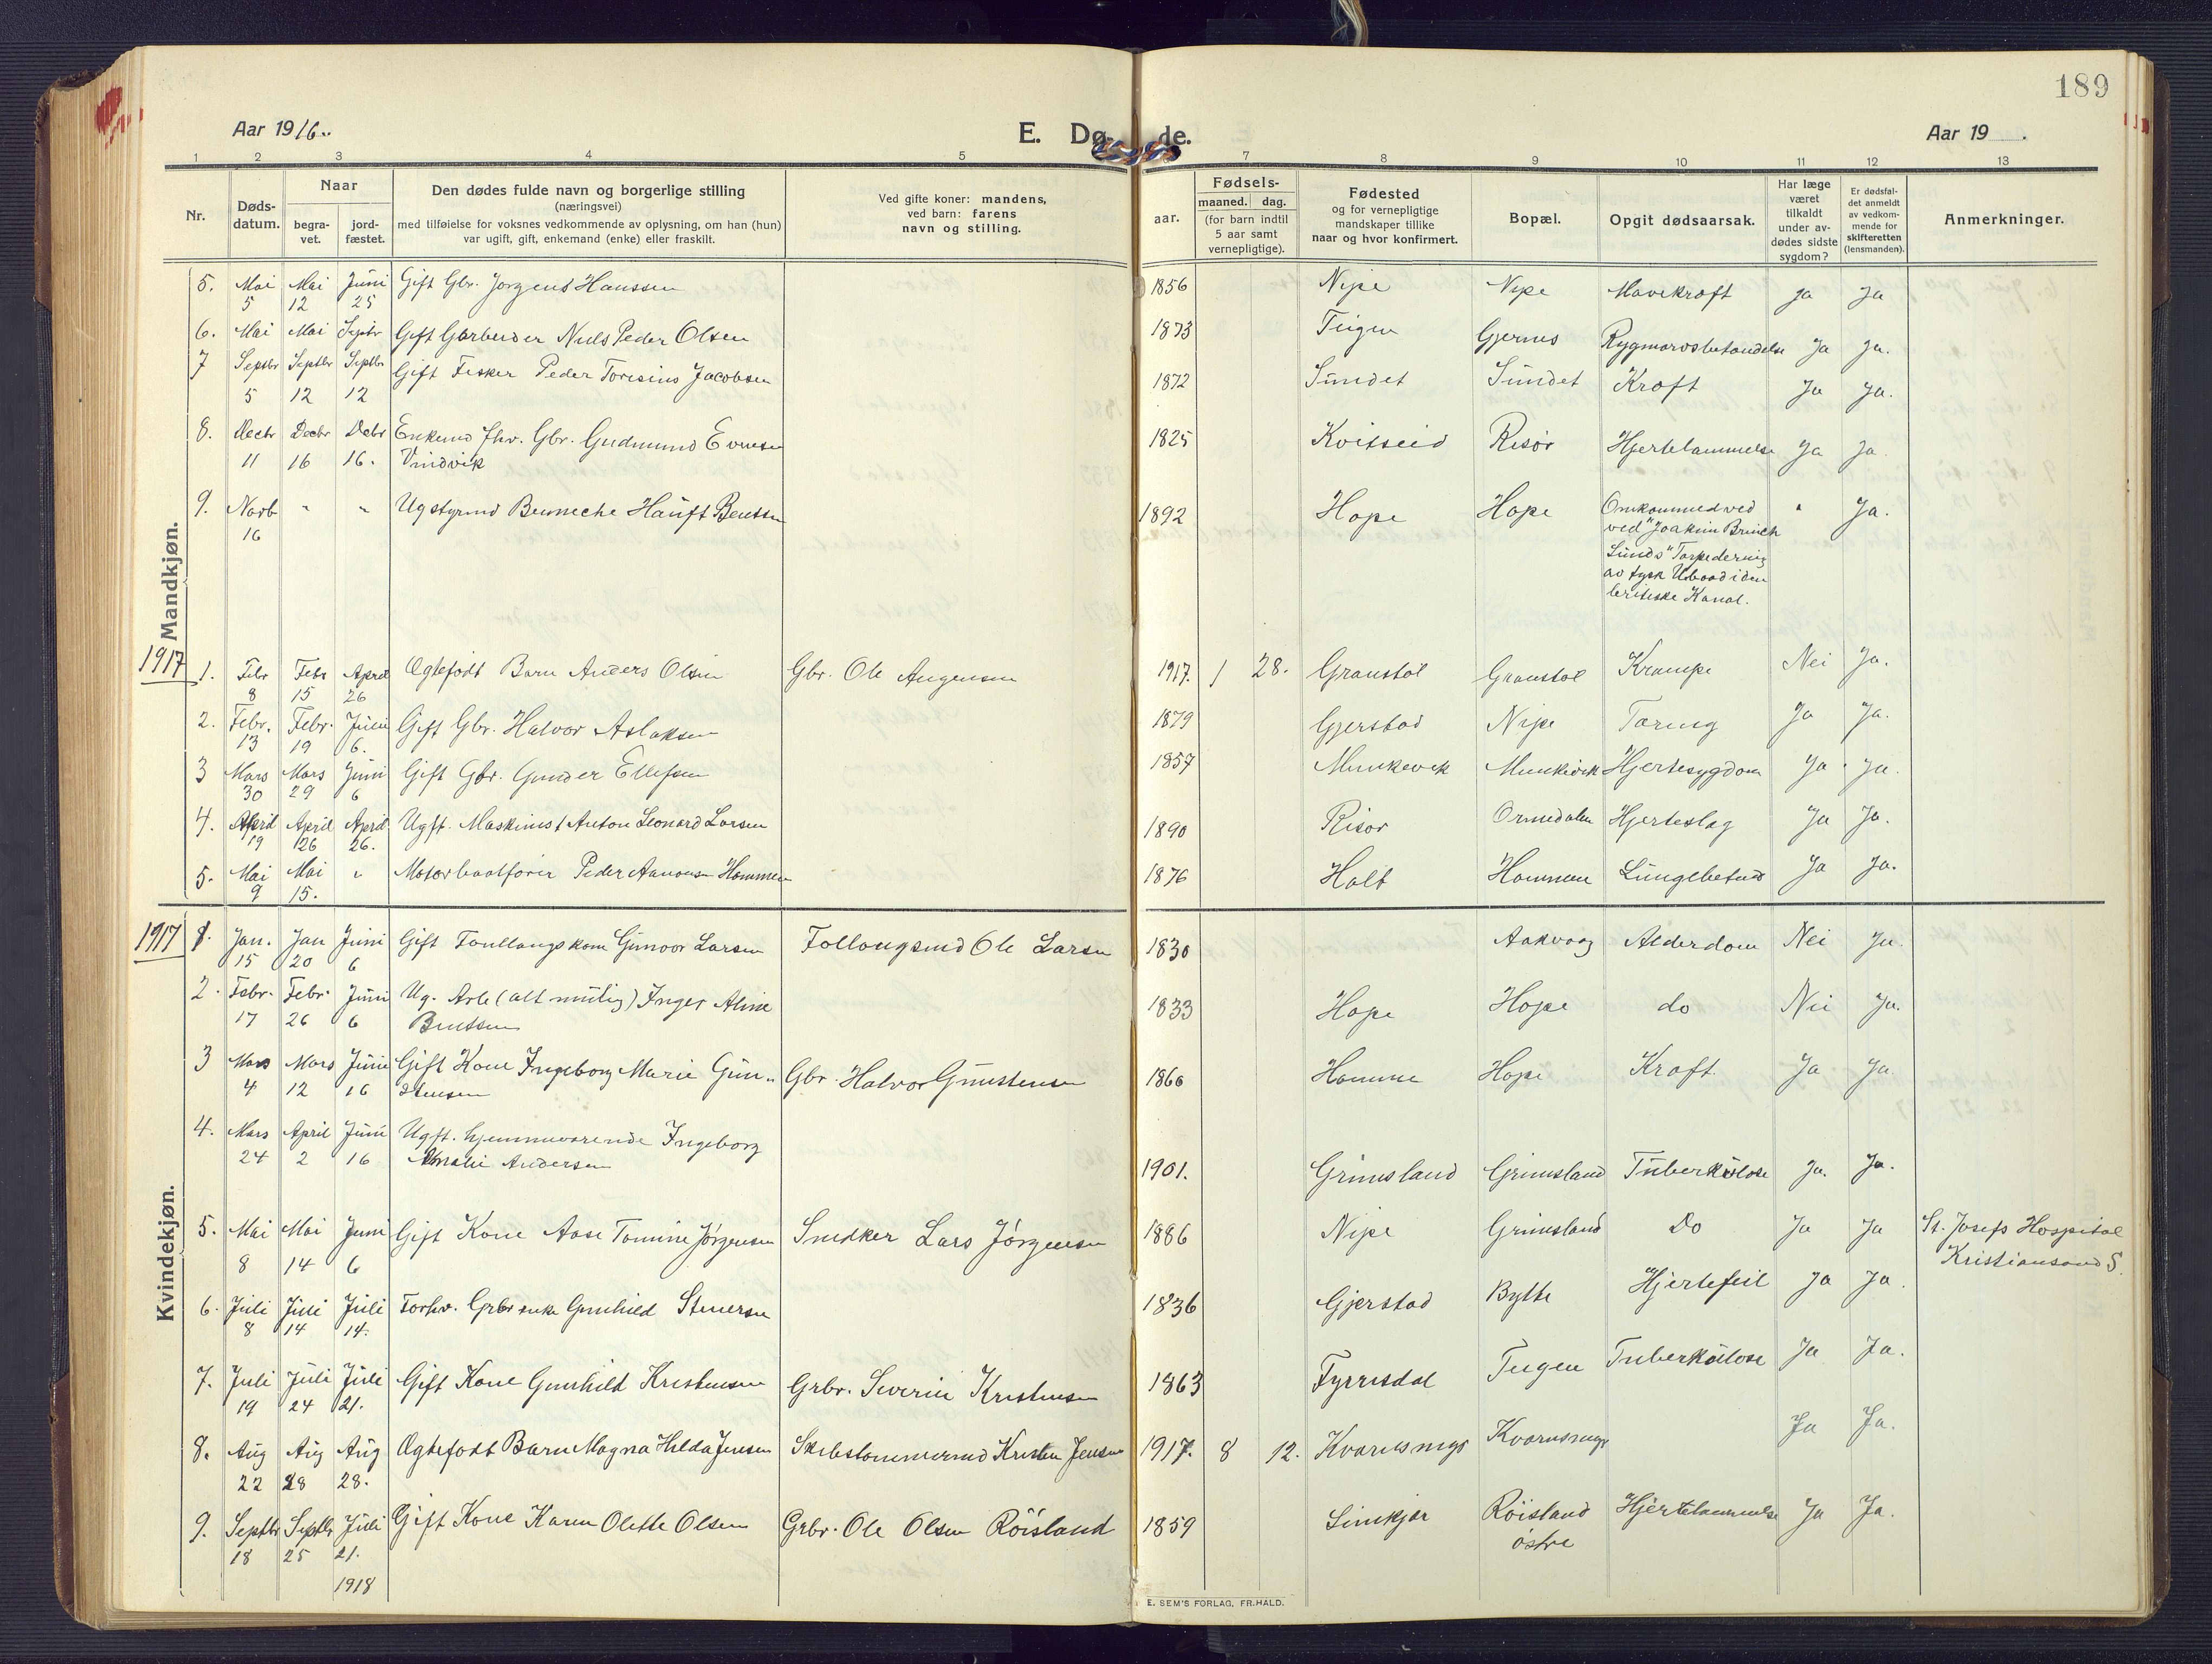 189
Aar 1916.
E. Dø-
de.
Aar 19 .
1 2 3 4 5 7 8 9 10 11 12 13
Nr.
Døds-
datum.
Naar
begra-
vet.
jord-
fæstet.
Den dødes fulde navn og borgerlige stilling
(næringsvei)
med tilføielse for voksnes vedkommende av oplysning, om han (hun)
var ugift, gift, enkemand (enke) eller fraskilt.
Ved gifte koner: mandens,
ved barn: farens
navn og stilling.
aar.
Fødsels-
maaned. dag.
(for barn indtil
5 aar samt
vernepligtige).
Fødested
og for vernepligtige
mandskaper tillike
naar og hvor konfirmert.
Bopæl.
Opgit dødsaarsak.
Har læge
været
tilkaldt
under av-
dødes sidste
sygdom?
Er dødsfal-
det anmeldt
av vedkom-
mende for
skifteretten
(lensmanden).
Anmerkninger.
Mandkjøn.
5. Mai Mai Juni Gift Gbr. Jorgens Hanssen 1856 Nipe Nipe Mavekraft Ja Ja
5 12 25
6. Mai Mai Septbr Gift Peder Olsen 1873 Teigen Ja Ja.
7 Septbr Septbr Septbr Gift Fisker Peder Toresius Jacobsen 1872 Sundet Sundet Kraft Ja Ja.
5 12 12
8. Decbr Decbr Debr Gbr. Gudmund Evensen 1825 Kvitseid Risør Hjertelammelse Ja Ja.
11 16 16. Vindvik
9. " " Ug styrmd Hanft Bentsen 1892 Hope Hope Omkommed ved " Ja.
16 ved "Joakim Brinch
Lunds" Torpedering
av tysk Ubaad i den
britiske Kanal.
1917
1. Febr Febr April Ægtefødt Barn Anders Olsen Gbr. Ole Augensen 1917. 1 28. Granstøl Granstøl Krampe Nei Ja.
8 15 26
2. Febr. Febr. Juni Gift Gbr. Halvor Aslaksen 1879 Gjerstad Nipe Tæring Ja Ja.
13 19 6.
3 Mars Mars Juni Gift Gbr. Gunder Ellefsen 1857 Munkevik Munkevik Hjertesygdom Ja Ja.
30 29 6
4. April April April Ugft. Maskinist Anton Leonard Larsen 1890 Risør Ormdalen Hjerteslag Ja Ja.
19 26 26.
5. Mai Mai " Motorbaatfører Peder Aanonsen Hommen 1876 Holt Hommen Ja Ja.
9 15.
Kvindekjøn.
1917
1. Jan. Jan Juni Gift Gunvor Larsen Ole Larsen 1830 Aakvaag Alderdom Nei Ja.
15 20 6
2. Febr. Febr. Juni Ug. Arb (alt mulig) Inger Aline 1833 Hope Hope do Nei Ja.
17 26 6 Bentsen
3 Mars Mars Juni Gift Kone Ingeborg Marie Gun- Gbr. Halvor Gunstensen 1860 Homme Hope Kraft Ja Ja.
4 12 16 stensen
4. Mars April Juni Ugft. hjemmeværende Ingeborg
24 2 16 Amalie Andersen 1901. Grimsland Grimsland Tuberkulose Ja. Ja.
5. Mai Mai Juni Gift Kone Aase Tomine Jørgensen Snedker Lars Jørgensen 1886 Nipe Grimsland Do Ja Ja St. Josefs Hospital
8 14 6 Kristiansand S.
6. Juli Juli Juli Forhv. Grbr enke Gunhild 1836 Gjerstad Bytte Hjertefeil Ja Ja.
8 14 14.
7. Juli Juli Juli Gift Kone Gunhild Kristensen Grbr. Severin Kristensen 1863 Fyrrisdal Teigen Tuberkulose Ja Ja.
19 24 21.
8. Aug Aug Aug Ægtefødt Barn Magna Hilda Jensen Skibstømmermd Kristen Jensen 1917. 8 12. Ja Ja.
22 28 28.
9. Septbr Septbr Juli Gift Kone Karen Olette Olsen Grbr. Ole Olsen Røisland 1859 Røisland Hjertelammelse Ja Ja.
18 25 21. østre
1918
E. SEM'S FORLAG, FR.HALD.